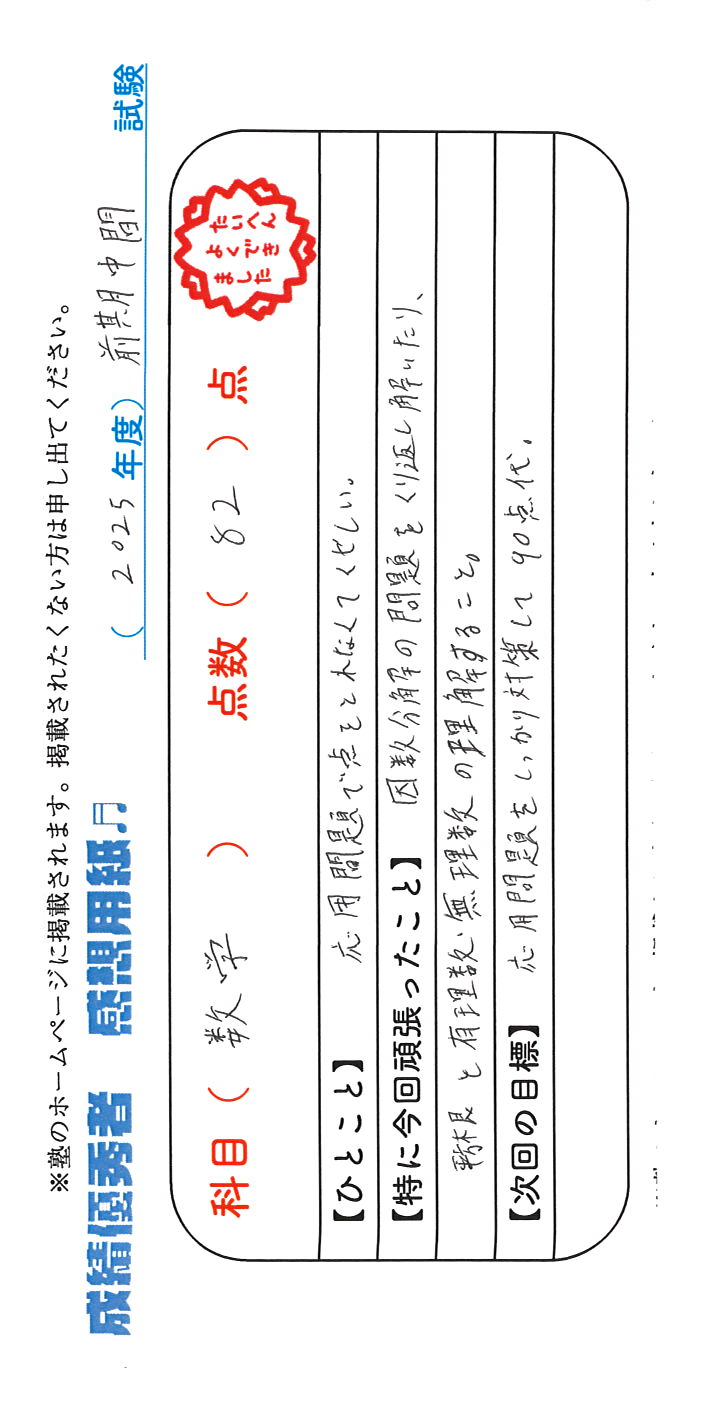 ※塾のホームページに掲載されます。掲載されたくない方は申し出てください。
成績優秀者 感想用紙♬ (2025年度) 前期中間 試験
科目( 数学 ) 点数( 82 )点
たいへん
よくでき
ました
【ひとこと】 応用問題で点をとれなくてくやしい。
【特に今回頑張ったこと】 因数分解の問題をくり返し解いたり、
と有理数・無理数の理解すること。
【次回の目標】 応用問題をしっかり対策して90点代。